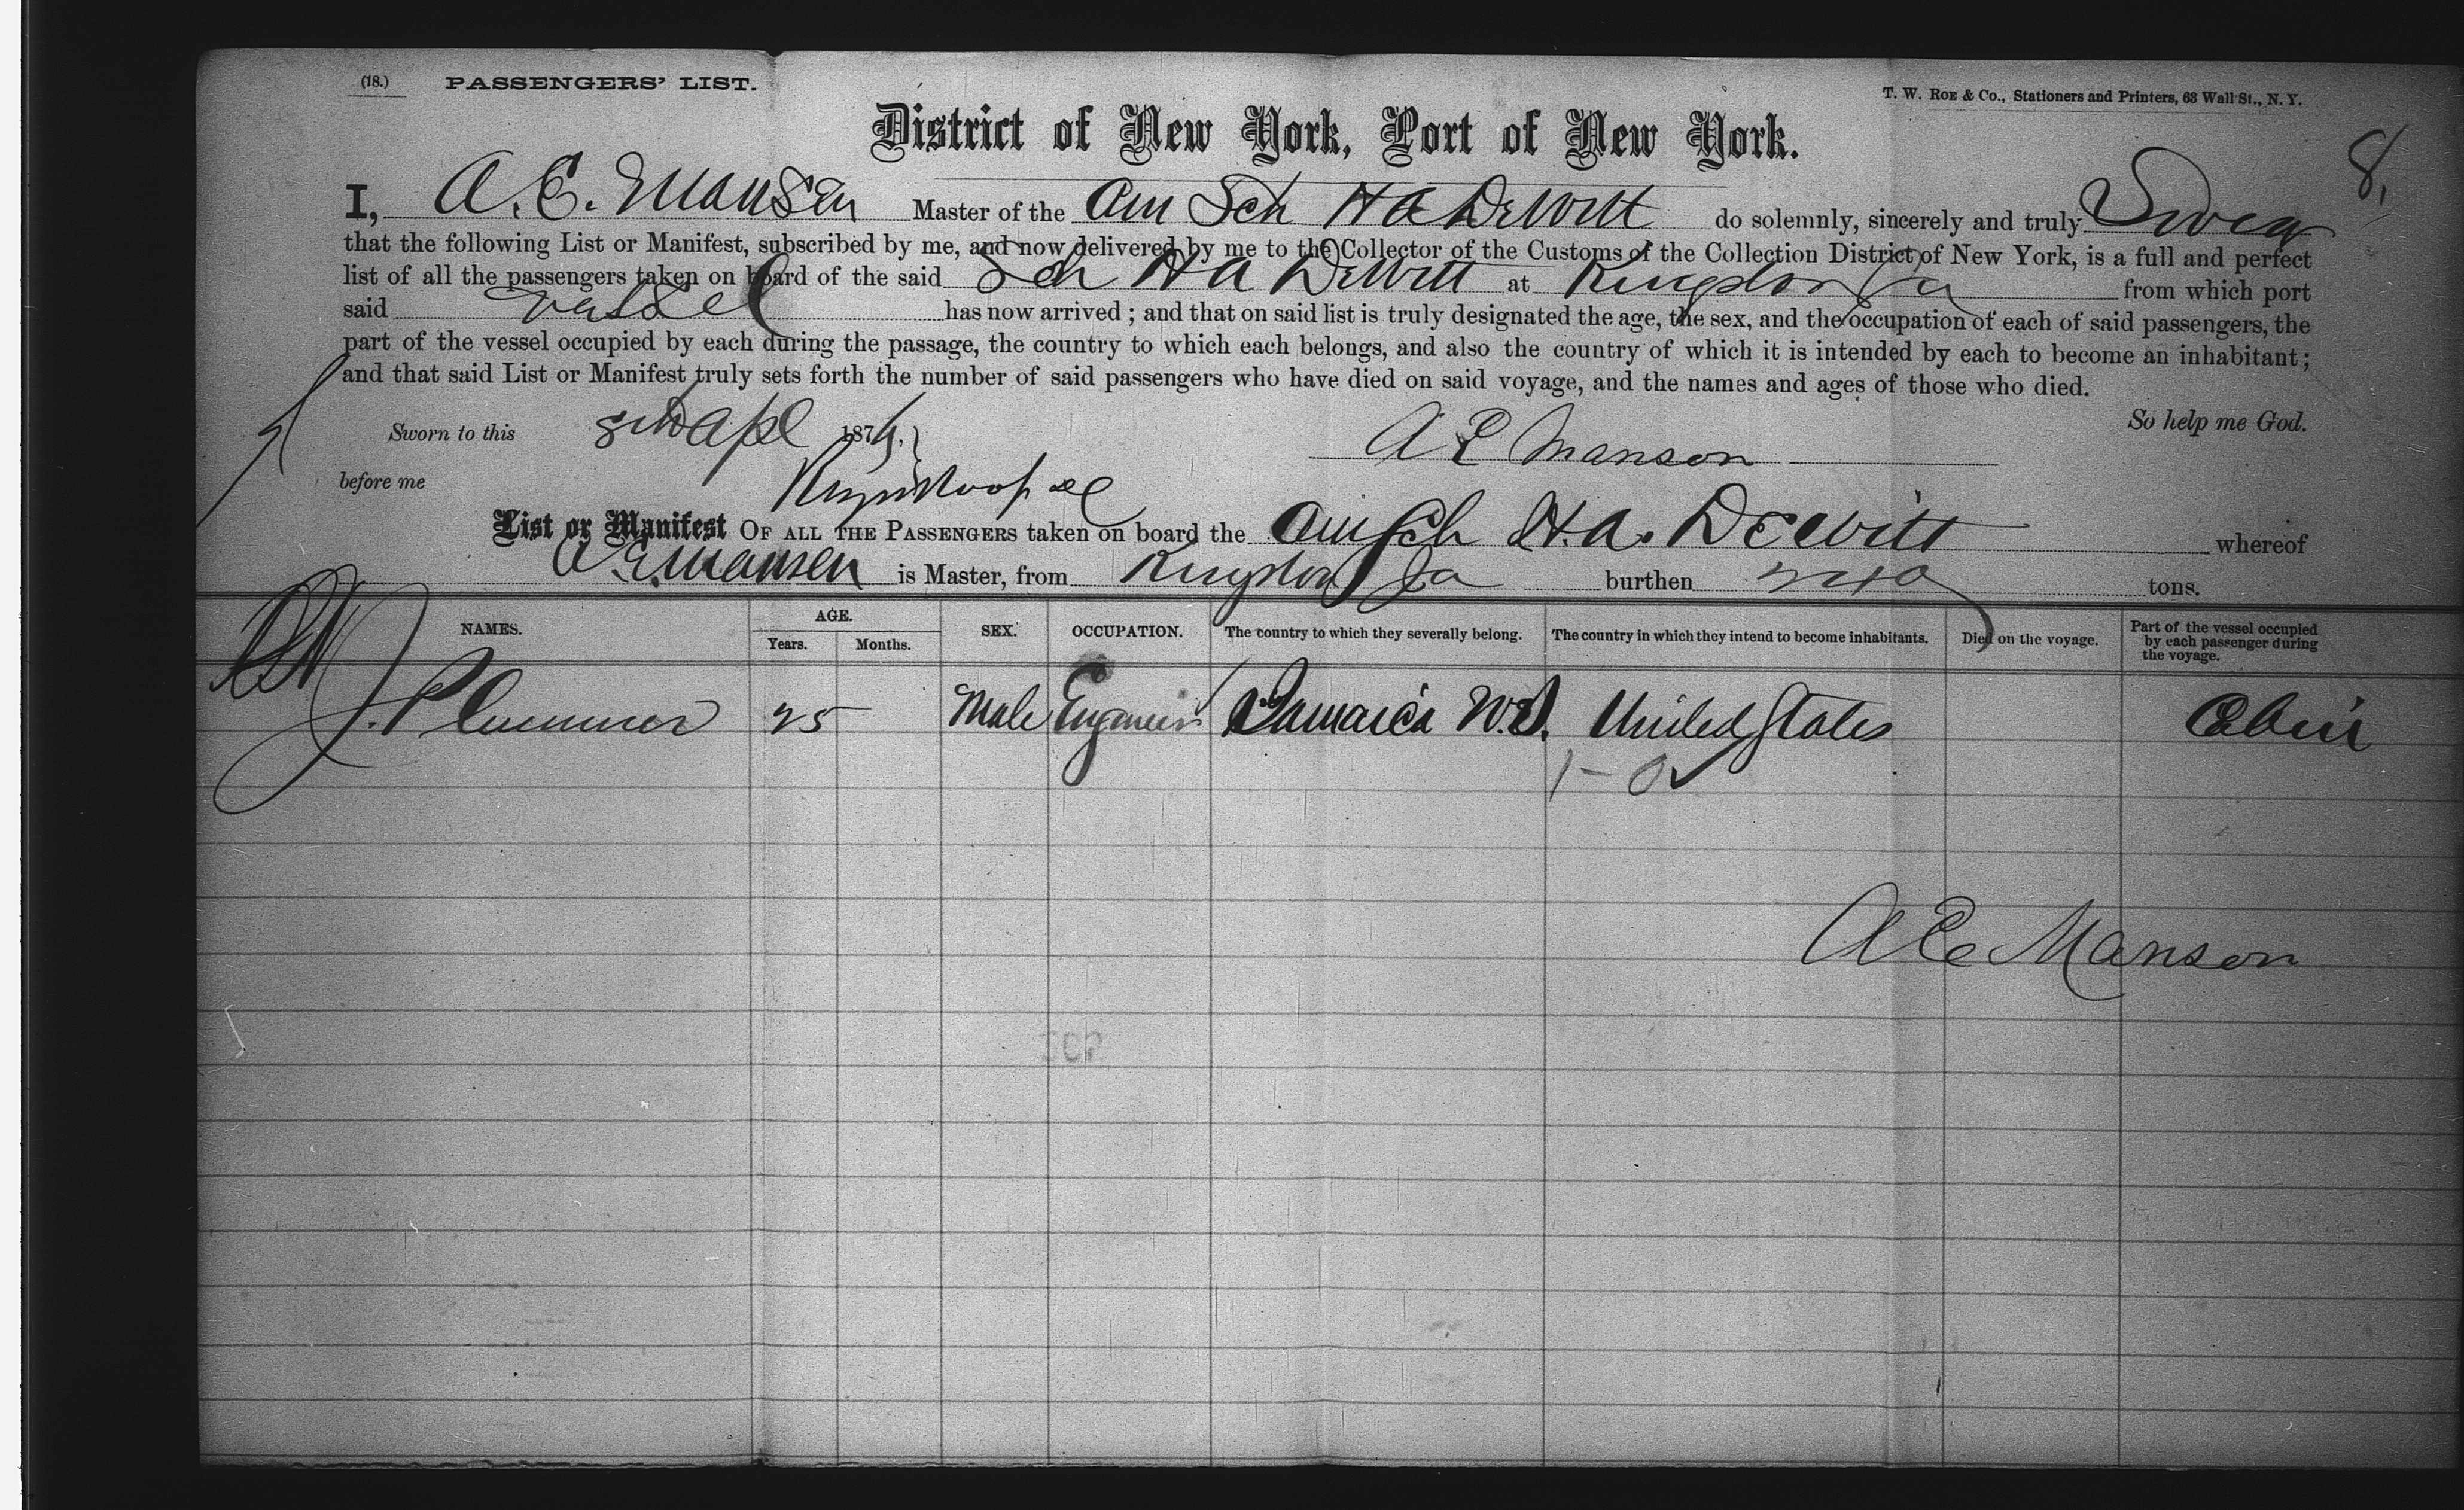 (18.) PASSENGERS' LIST.
T. W. ROE & Co., Stationers and Printers, 63 Wall St., N. Y.
District of New York, Port of New York.
8.
I, A. E. Mansen Master of the Am Sch H A DeWitt do solemnly, sincerely and truly Swear
that the following List or Manifest, subscribed by me, and now delivered by me to the Collector of the Customs of the Collection District of New York, is a full and perfect
list of all the passengers taken on board of the said Sch H A DeWitt at Kingston Ja from which port
said vessel has now arrived ; and that on said list is truly designated the age, the sex, and the occupation of each of said passengers, the
part of the vessel occupied by each during the passage, the country to which each belongs, and also the country of which it is intended by each to become an inhabitant;
and that said List or Manifest truly sets forth the number of said passengers who have died on said voyage, and the names and ages of those who died.
So help me God.
Sworn to this 8th Apl 187
A E Manson
before me
List or Manifest OF ALL THE PASSENGERS taken on board the Am Sch H. A. DeWitt whereof
A. E. Mansen is Master, from Kingston Ja burthen tons.
NAMES. AGE. Years. Months. SEX. OCCUPATION. The country to which they severally belong. The country in which they intend to become inhabitants. Died on the voyage. Part of the vessel occupied by each passenger during the voyage.
J. Plummer 25 Male Engineer Jamaica W.I. United States Cabin
1 - 0
A E Manson